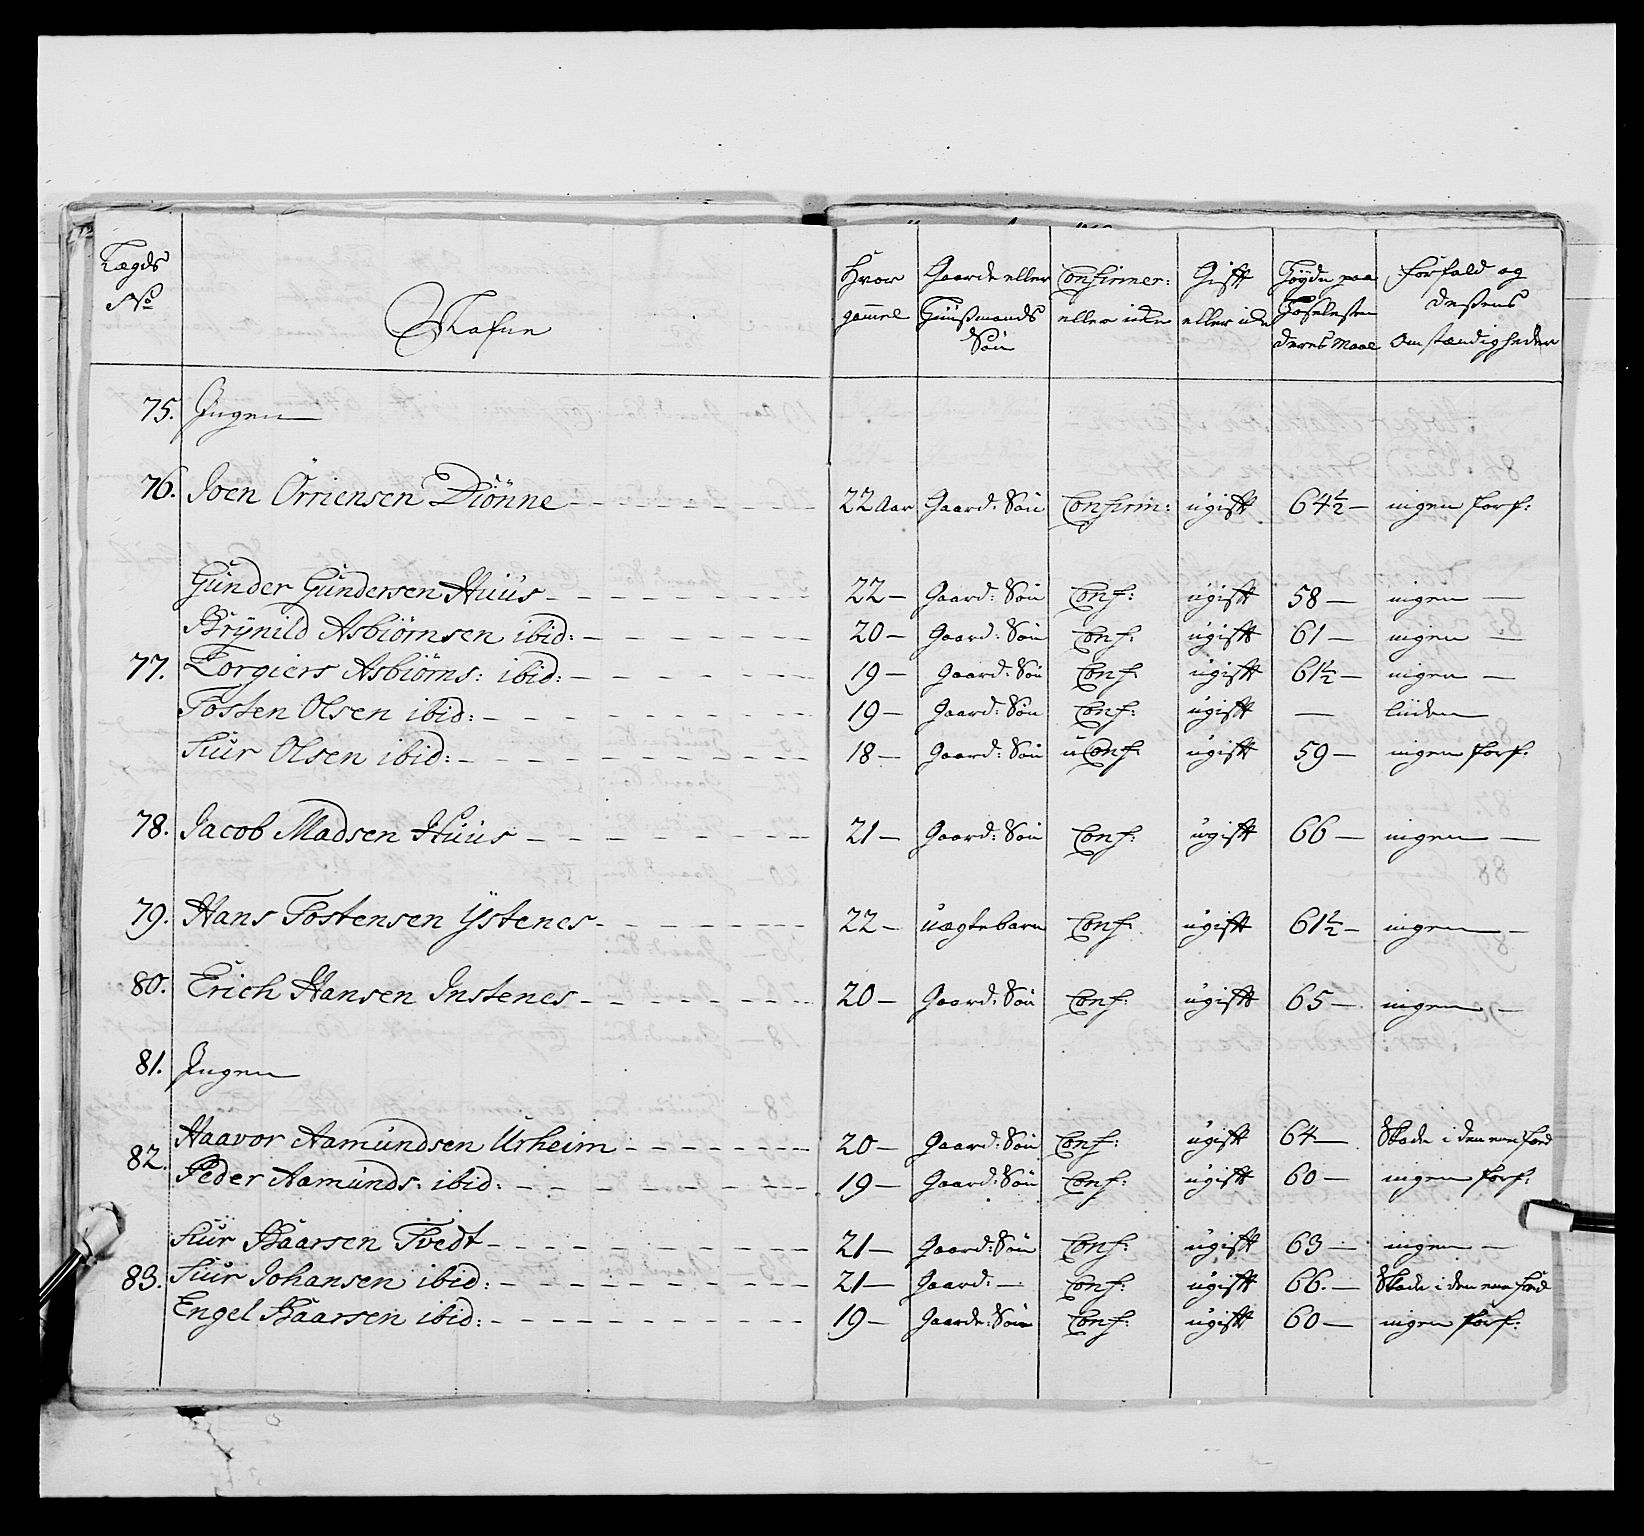 Lægds No | Nafne | Hvor gammel | Gaard eller Huusmands Søn | Confirmer: eller icke | Gift eller icke | Høyde paa Hoselesten deres Maal | Forfald og desßens Omstændigheder
75. Ingen
76. Joen Örriensen Diönne | 22 Aar | Gaard: Søn | Confirm: | ugift | 64½ | ingen forf:
Gunder Gundersen Huus | 22 | Gaard: Søn | Conf: | ugift | 58 | ingen
Brÿnild Asbiörnsen ibid: | 20 | Gaard: Søn | Conf: | ugift | 61 | ingen
77. Torgiers Asbiörns: ibid: | 19 | Gaard: Søn | Conf: | ugift | 61½ | ingen
Tosten Olsen ibid: | 19 | Gaard: Søn | Conf: | ugift | — | liiden
Siur Olsen ibid: | 18 | Gaard: Søn | uConf: | ugift | 59 | ingen forf:
78. Jacob Madsen Huus | 21 | Gaard: Søn | Conf: | ugift | 66 | ingen
79. Hans Tostensen Ÿstenes | 22 | uægtebarn | Conf: | ugift | 61½ | ingen
80. Erich Hansen Instenes | 20 | Gaard: Søn | Conf: | ugift | 65 | ingen
81. Ingen
82. Haavor Aamundsen Urheim | 20 | Gaard: Søn | Conf: | ugift | 64 | Skade i den eene Fod
Peder Aamunds: ibid: | 19 | Gaard: Søn | Conf: | ugift | 60 | ingen forf:
Siur Baarsen Tvedt | 21 | Gaard: Søn | Conf: | ugift | 63 | ingen
83. Siur Johansen ibid: | 21 | Gaard: — | Conf: | ugift | 66. | Skade i den eene Fod
Engel Baarsen ibid: | 19 | Gaard: Søn | Conf: | ugift | 60 | ingen forf: